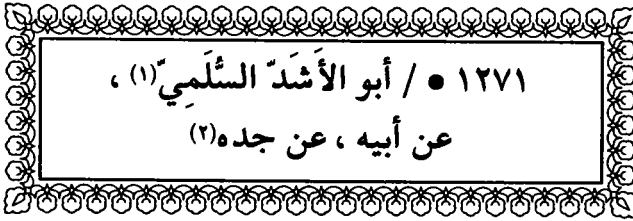 ١٢٧١ ● / أبو الأَشَدّ السُّلَمِيّ(١) ،
عن أبيه ، عن جده(٢)